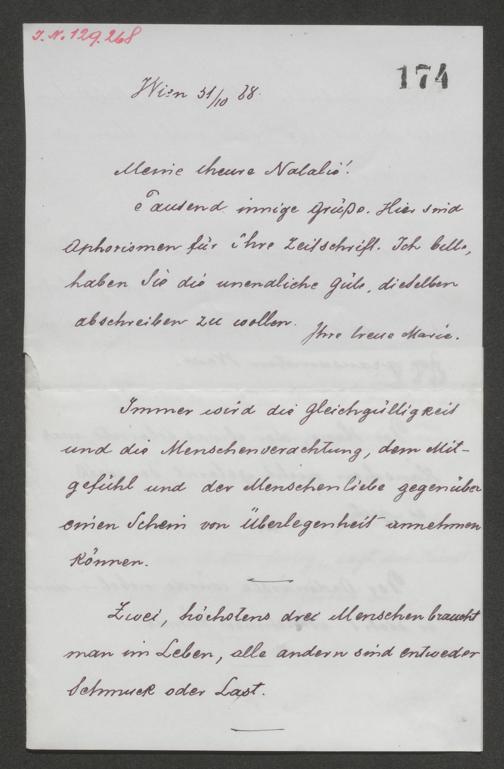 J.N. 129.268
174
Wien 31/10 88.
Meine theure Natalie!
Tausend innige Grüße. Hier sind
Aphorismen für Ihre Zeitschrift. Ich bitte,
haben Sie die unendliche Güte, dieselben
abschreiben zu wollen.
Ihre treue Marie.
Immer wird die Gleichgültigkeit
und die Menschenverachtung, dem Mit-
gefühl und der Menschenliebe gegenüber
einen Schein von Überlegenheit annehmen
können.
Zwei, höchstens drei Menschen braucht
man im Leben, alle andern sind entweder
Schmuck oder Last.